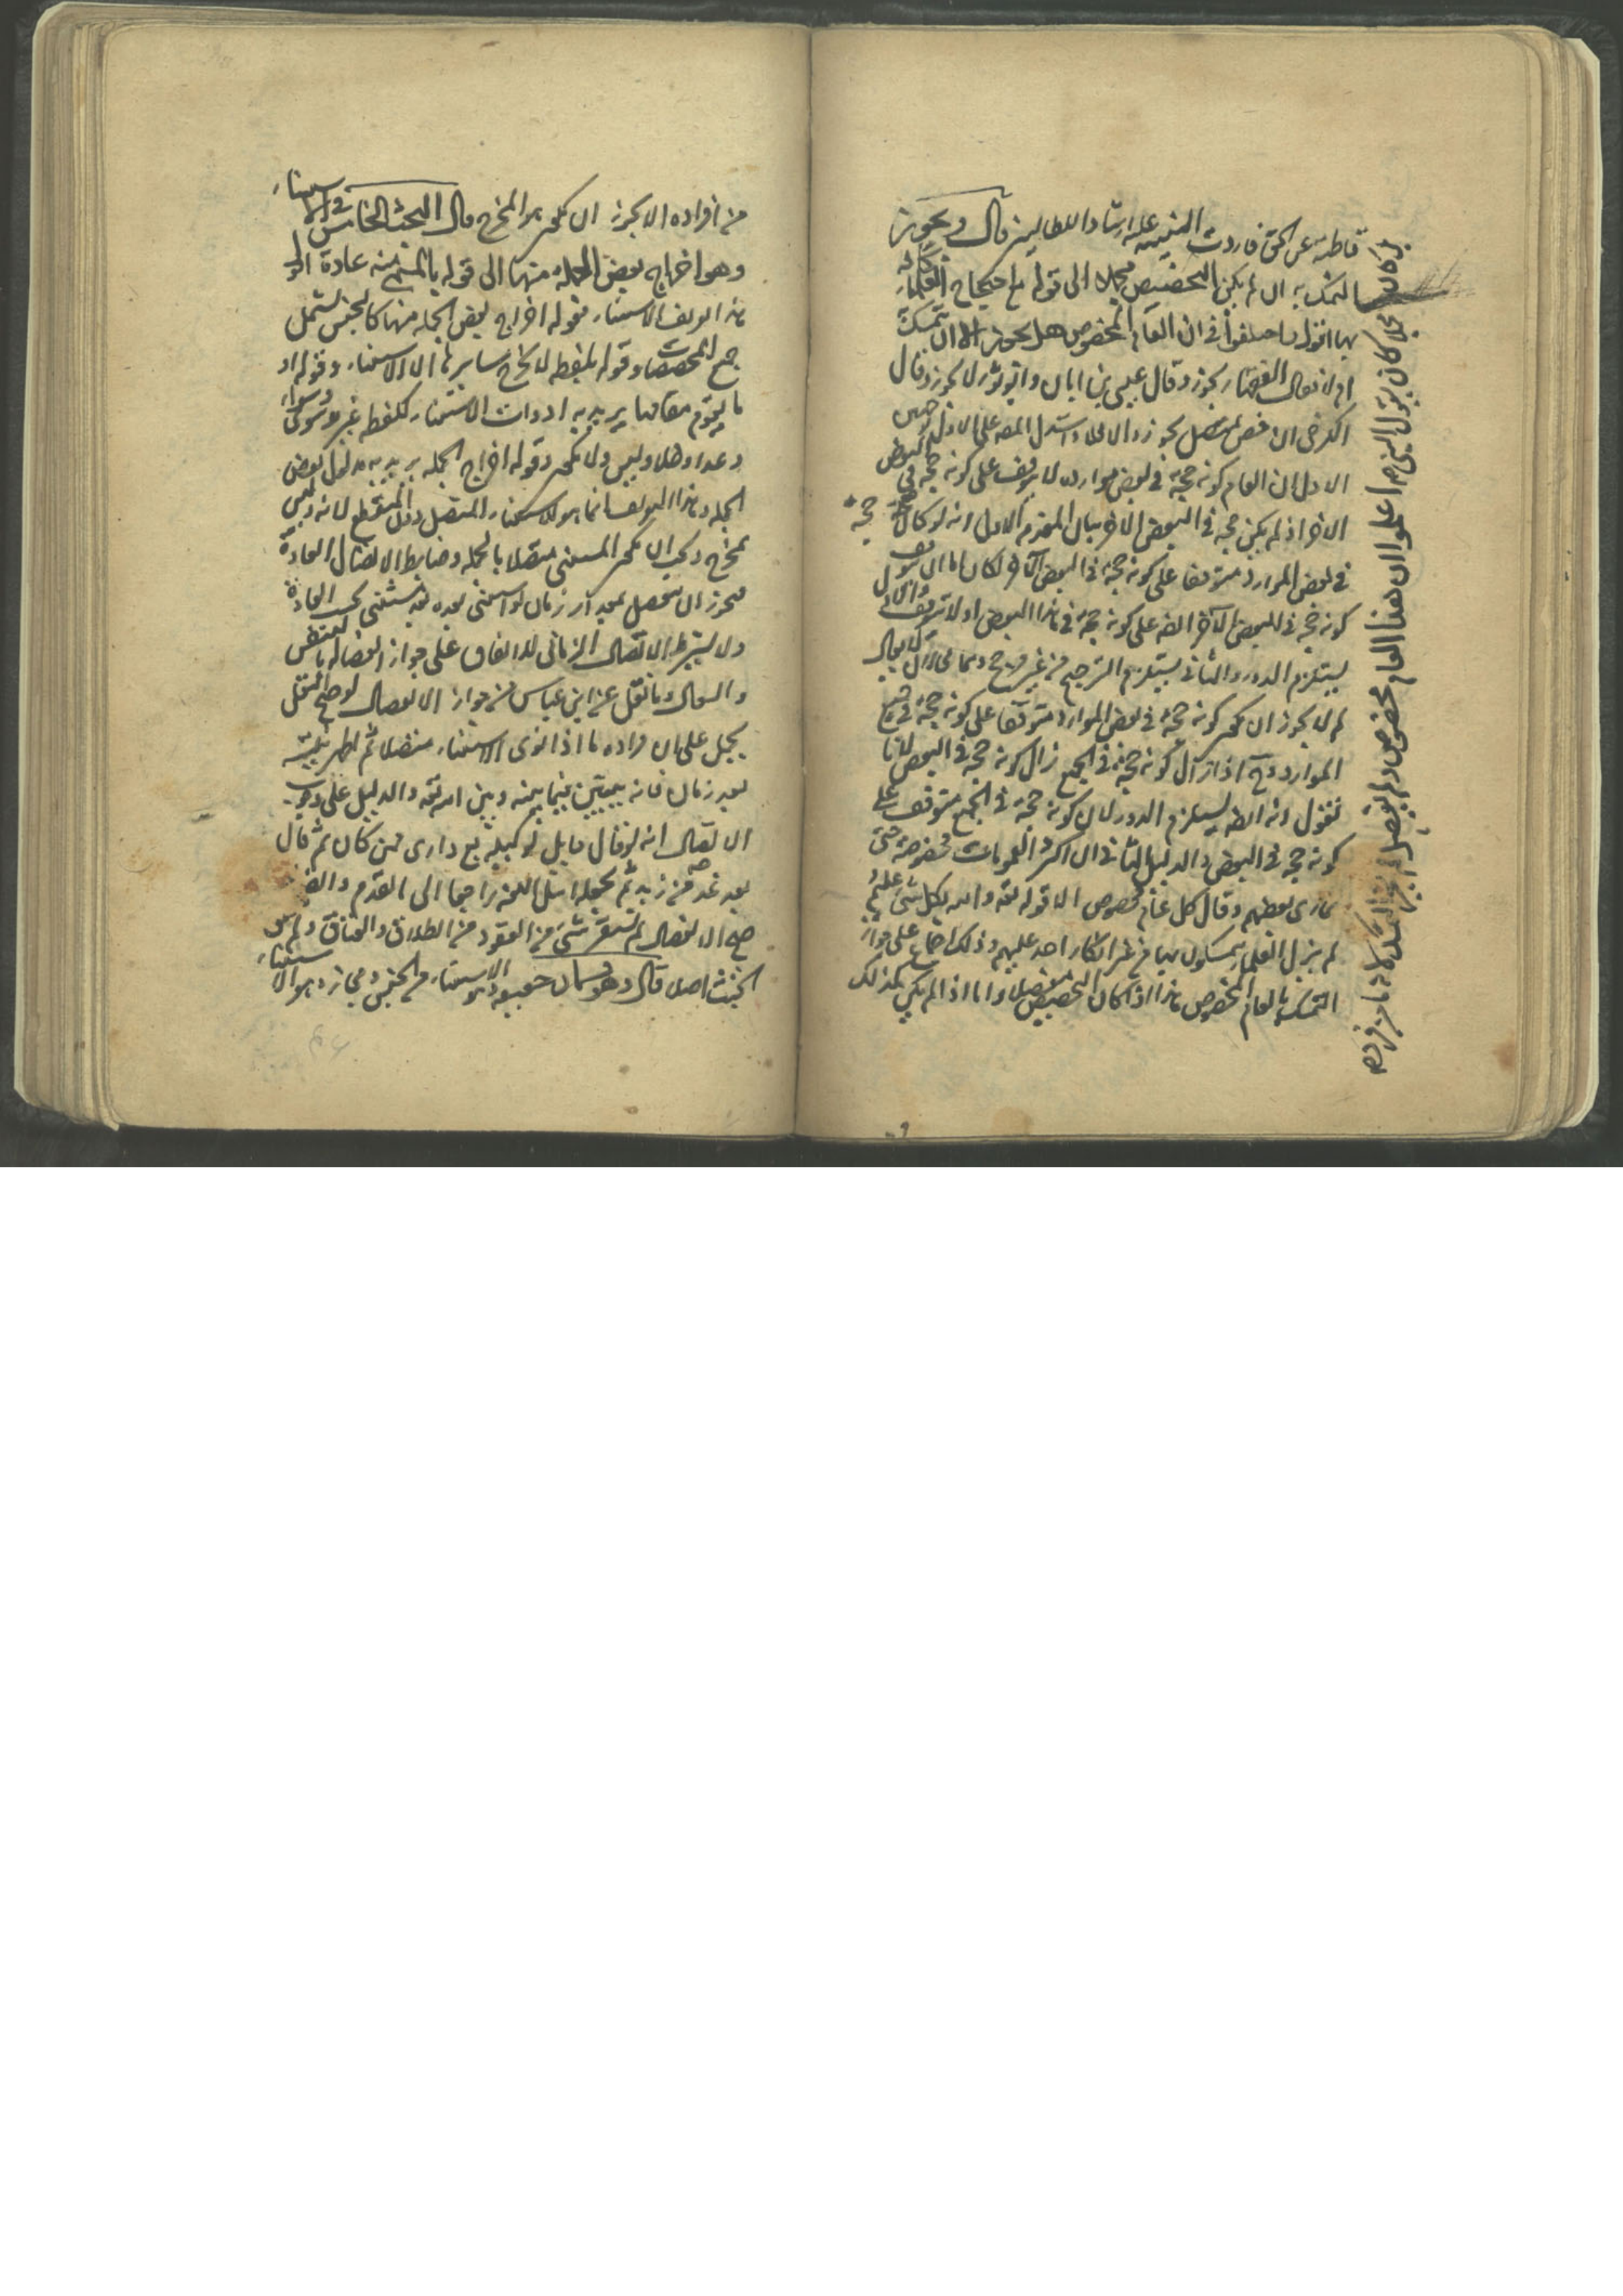 قاطبة عن الحق فاردت التنبيه عليه ارشادا للطالبين قال ويجوز
التمسك به ان لم يكن التخصيص مجملا الى قوله مع احتجاج العلماء كافة
بها اقول اختلفوا في ان العام المخصوص هل يجوز ان يتمسك
ام لا فقال الفقهاء يجوز وقال عيسى بن ابان وابو ثور لا يجوز وقال
الكرخي ان خص بمتصل يجوز والا فلا واستدل المصنف على الاول بوجهين
الاول ان العام كونه حجة في بعض موارده لا يتوقف على كونه حجة في البعض
الاخر اذ لم يكن حجة في البعض الاخر بيان المقدم الاول انه لو كان حجة
في بعض الموارد متوقفا على كونه حجة في البعض الآخر لكان اما ان يتوقف
كونه حجة في البعض الآخر ايضا على كونه حجة في هذا البعض او لا يتوقف والاول
يستلزم الدور والثاني يستلزم الترجيح من غير مرجح وهما محالان لا يقال
لم لا يجوز ان يكون كونه حجة في بعض الموارد متوقفا على كونه حجة في جميع
الموارد وح اذا زال كونه حجة في الجميع زال كونه حجة في البعض لانا
نقول انه ايضا يستلزم الدور لان كونه حجة في الجميع متوقف على
كونه حجة في البعض والدليل الثاني ان اكثر العمومات مخصوصة حتى
تمارى بعضهم وقال كل عام مخصوص الا قوله تعالى والله بكل شيء عليم
لم يزل العلماء يتمسكون بها من غير انكار احد عليهم وذلك اجماع على جواز
التمسك بالعام المخصوص هذا اذا كان التخصيص مفصلا واما اذا لم يكن كذلك
بل كان مجملا كان يقول النبي اعلموا ان هذا العام مخصوص ولم يفصل لم يجز التمسك به لانه ما من فرد
من افراده الا يجوز ان يكون هو المخرج قال البحث الخامس في الاستثناء
وهو اخراج بعض الجملة منها الى قوله بالمستثنى منه عادة اقول
هذا تعريف الاستثناء فقوله اخراج بعض الجملة منها كالجنس يشمل
جميع المخصصات وقوله بلفظة الا يخرج سايرها الا الاستثناء وقوله او
ما يقوم مقامها يريد به ادوات الاستثناء كلفظة غير وسوى وسواء
وعدا وخلا وليس ولا يكون وقوله اخراج الجملة يريد به مدلول بعض
الجملة وهذا التعريف انما هو للاستثناء المتصل دون المنقطع لانه ليس
بمخرج ويجب ان يكون المستثنى متصلا بالجملة وضابط الاتصال العادة
فيجوز ان يحصل بعد آن زمان لو استثنى بعده يعد مستثنى بحسب العادة
ولا يشترط الاتصال الزماني للاتفاق على جواز انفصاله بالتنفس
والسعال وما نقل عن ابن عباس من جواز الانفصال لو صح النقل
يحمل على ان مراده ما اذا نوى الاستثناء متصلا ثم اظهر نيته
بعد زمان فانه يديّن فيما بينه وبين الله تعالى والدليل على وجوب
الاتصال انه لو قال قايل لوكيله بع داري ممن كان ثم قال
بعد غد من زيد ثم يجعله اهل اللغة راجعا الى المقدم وايضا
صح الانفصال لم يستقر شيء من العقود من الطلاق والعتاق ولم
الحنث اصلا قال وهو قسمان حقيقة وهو الاستثناء من الجنس ومجاز وهو الاستثناء